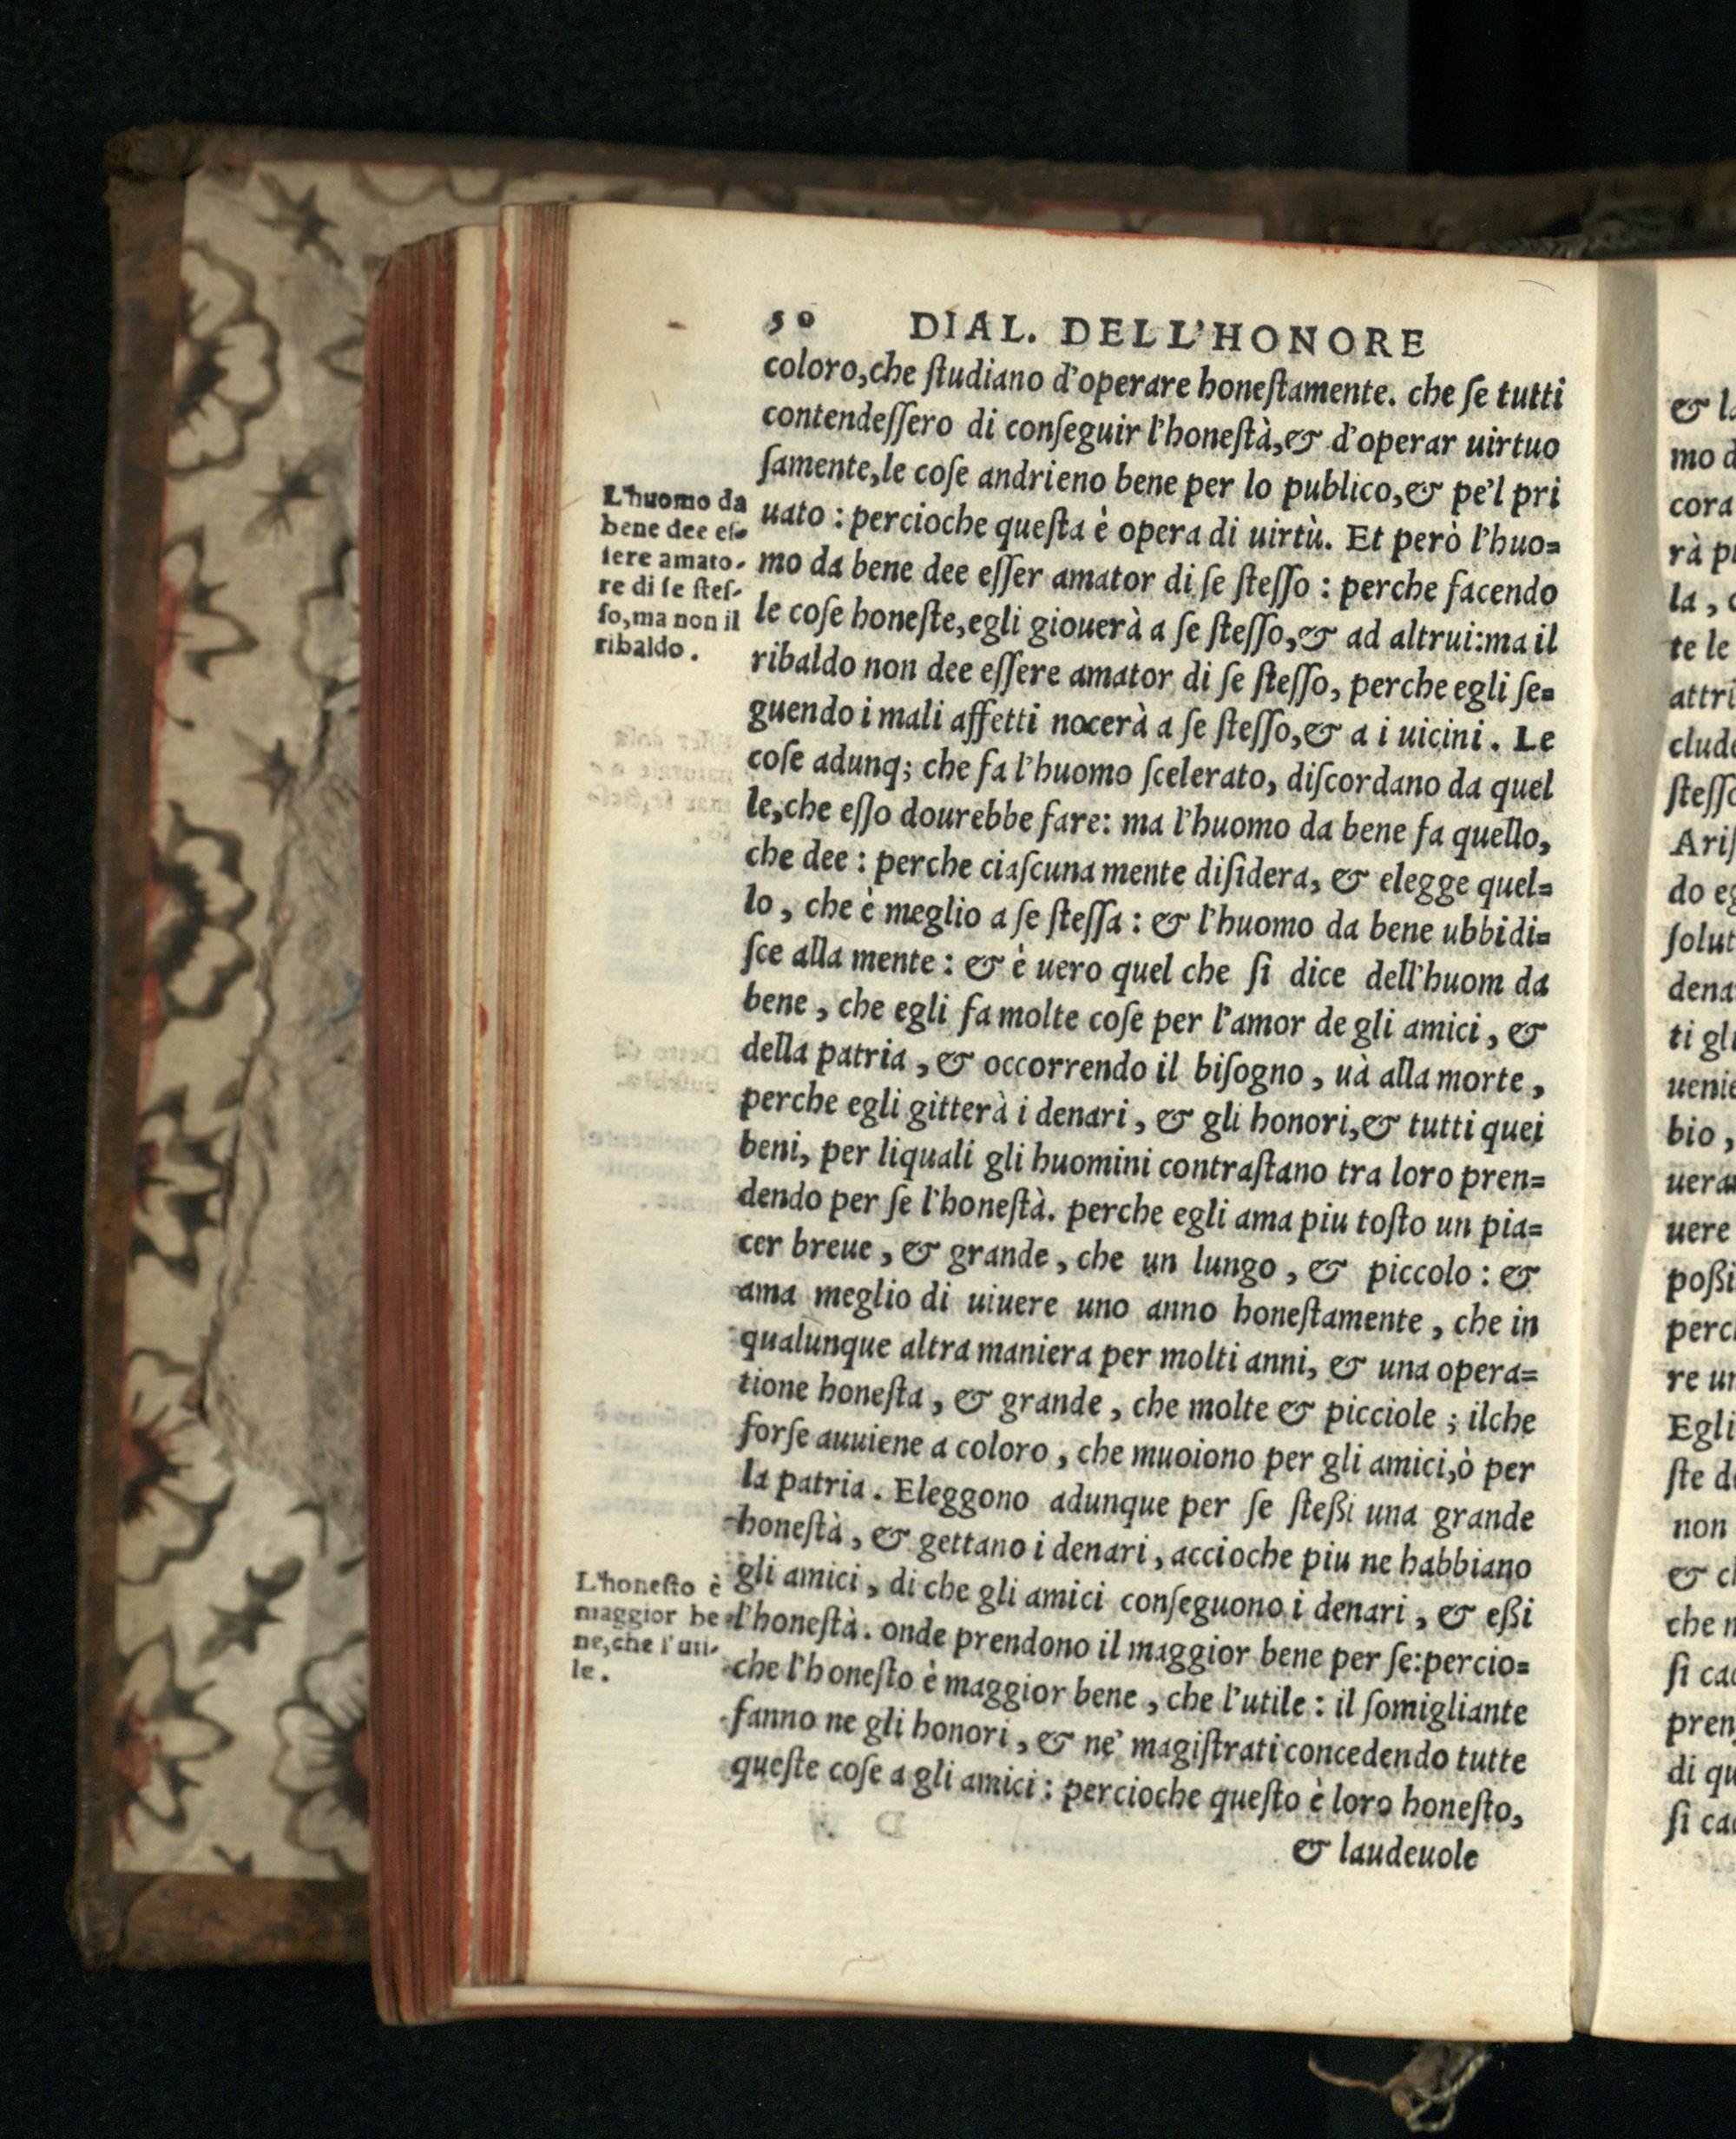 50 DIAL. DELL'HONORE
coloro,che ſtudiano d'operare honeſtamente. che ſe tutti
contendeſſero di conſeguir l'honeſtà,& d'operar uirtuo
ſamente,le coſe andrieno bene per lo publico,& pe'l pri
uato : percioche queſta è opera di uirtù. Et però l'huo=
mo da bene dee eſſer amator di ſe ſteſſo : perche facendo
le coſe honeſte,egli giouerà a ſe ſteſſo,& ad altrui:ma il
ribaldo non dee eſſere amator di ſe ſteſſo, perche egli ſe=
guendo i mali affetti nocerà a ſe ſteſſo,& a i uicini. Le
coſe adunq; che fa l'huomo ſcelerato, diſcordano da quel
le,che eſſo dourebbe fare: ma l'huomo da bene fa quello,
che dee : perche ciaſcuna mente diſidera, & elegge quel=
lo, che è meglio a ſe ſteſſa : & l'huomo da bene ubbidi=
ſce alla mente : & è uero quel che ſi dice dell'huom da
bene, che egli fa molte coſe per l'amor de gli amici, &
della patria, & occorrendo il biſogno, uà alla morte,
perche egli gitterà i denari, & gli honori,& tutti quei
beni, per liquali gli huomini contraſtano tra loro pren=
dendo per ſe l'honeſtà. perche egli ama piu toſto un pia=
cer breue, & grande, che un lungo, & piccolo : &
ama meglio di uiuere uno anno honeſtamente, che in
qualunque altra maniera per molti anni, & una opera=
tione honeſta, & grande, che molte & picciole ; ilche
forſe auuiene a coloro, che muoiono per gli amici,ò per
la patria. Eleggono adunque per ſe ſteßi una grande
honeſtà, & gettano i denari, accioche piu ne habbiano
gli amici, di che gli amici conſeguono i denari, & eßi
l'honeſtà. onde prendono il maggior bene per ſe:percio=
che l'honeſto è maggior bene, che l'utile : il ſomigliante
fanno ne gli honori, & ne' magiſtrati concedendo tutte
queſte coſe a gli amici : percioche queſto è loro honeſto,
& laudeuole
L'huomo da
bene dee eſ-
ſere amato-
re di ſe ſteſ-
ſo,ma non il
ribaldo.
L'honeſto è
maggior be
ne,che l'uti-
le.
& la
mo d
cora
rà pr
la, c
te le
attri
clude
ſteſſo
Ariſ
do eg
ſolut
dena
ti gli
uenie
bio,
ueran
uere
poßi
perch
re un
Egli
ſte de
non
& ch
che n
ſi cac
pren
di qu
ſi cac